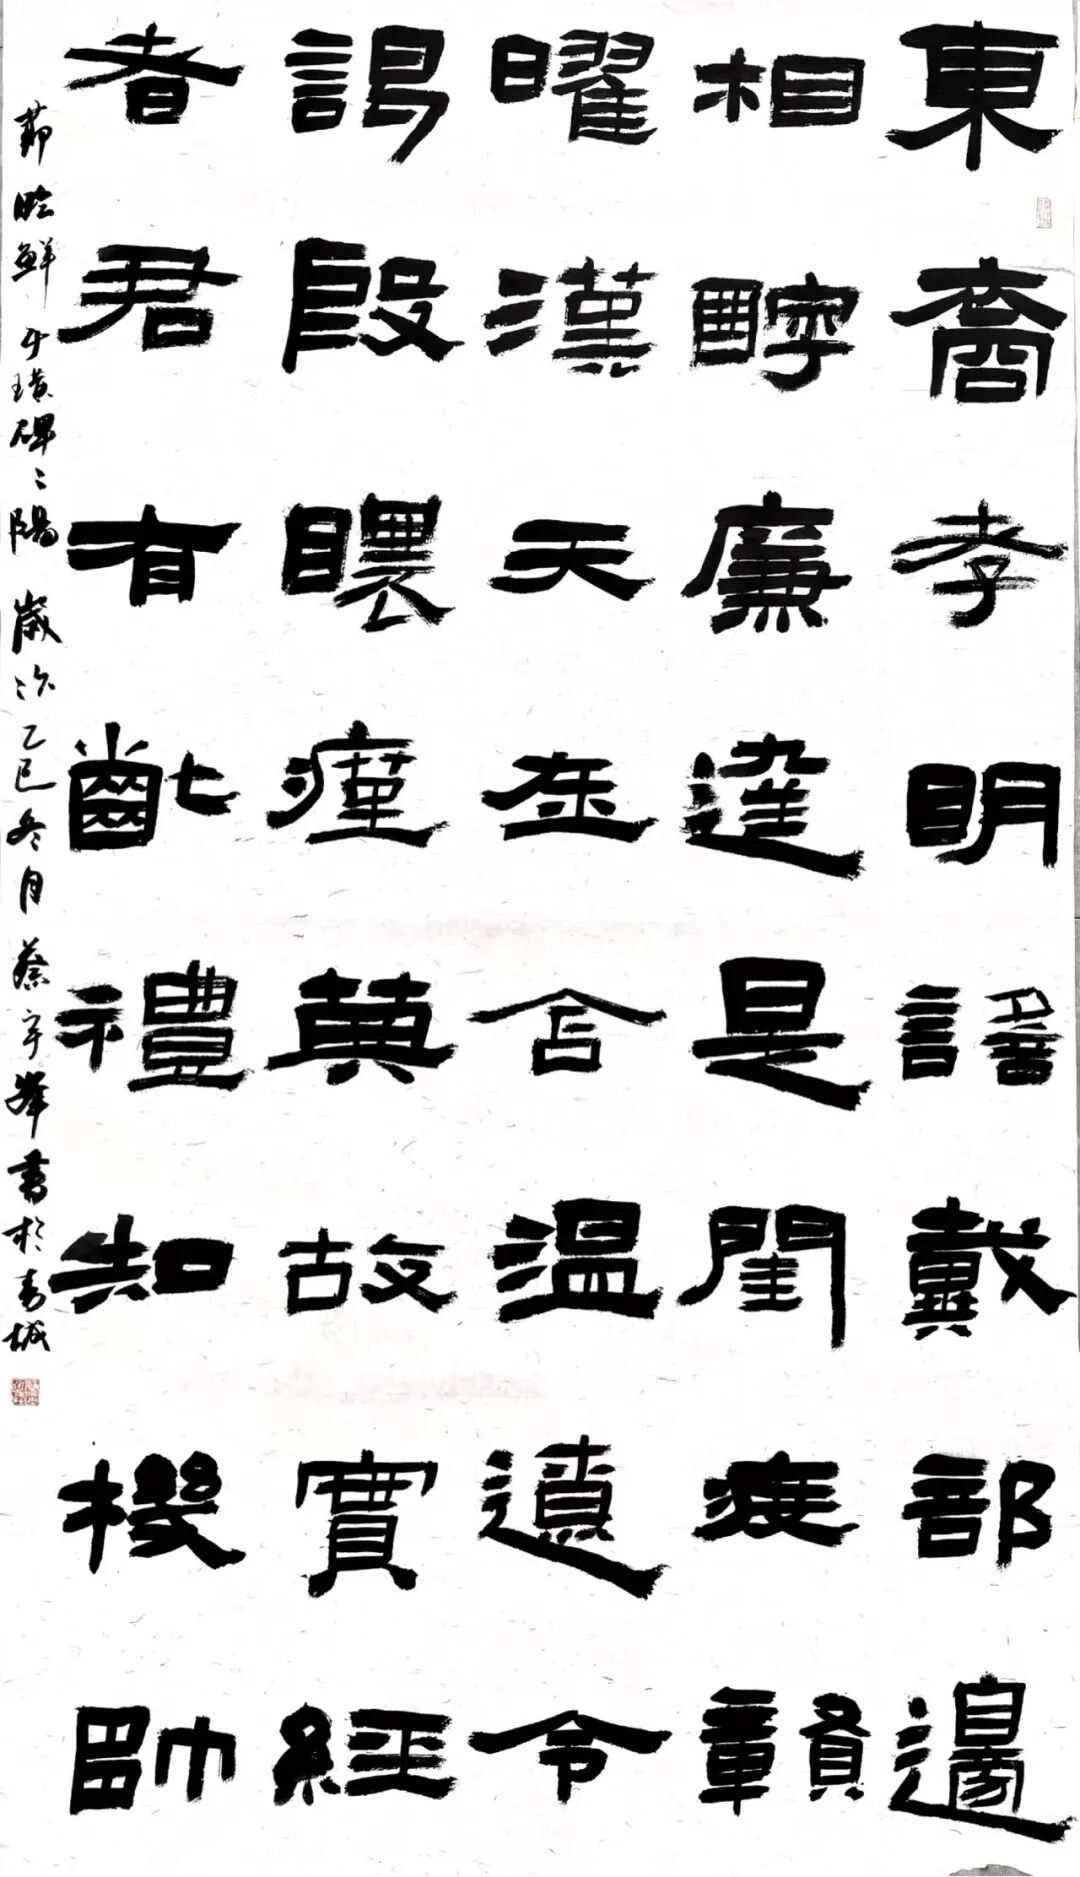 東裔孝明戴部邊
相廉達是閨贛
曜漢天在含溫遺令
謁段故實經
者君有齔禮知機帥
節臨鮮于璜碑之陽 歲次乙巳冬月蔡宇峰書於青城